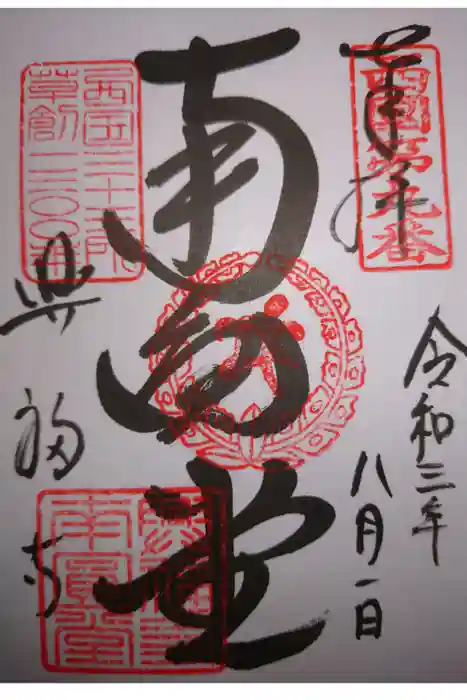 奉拝
西國第九番
令和三年
八月一日
南圓堂
西国三十三所
草創一三〇〇年
興福寺
興福寺
南圓堂